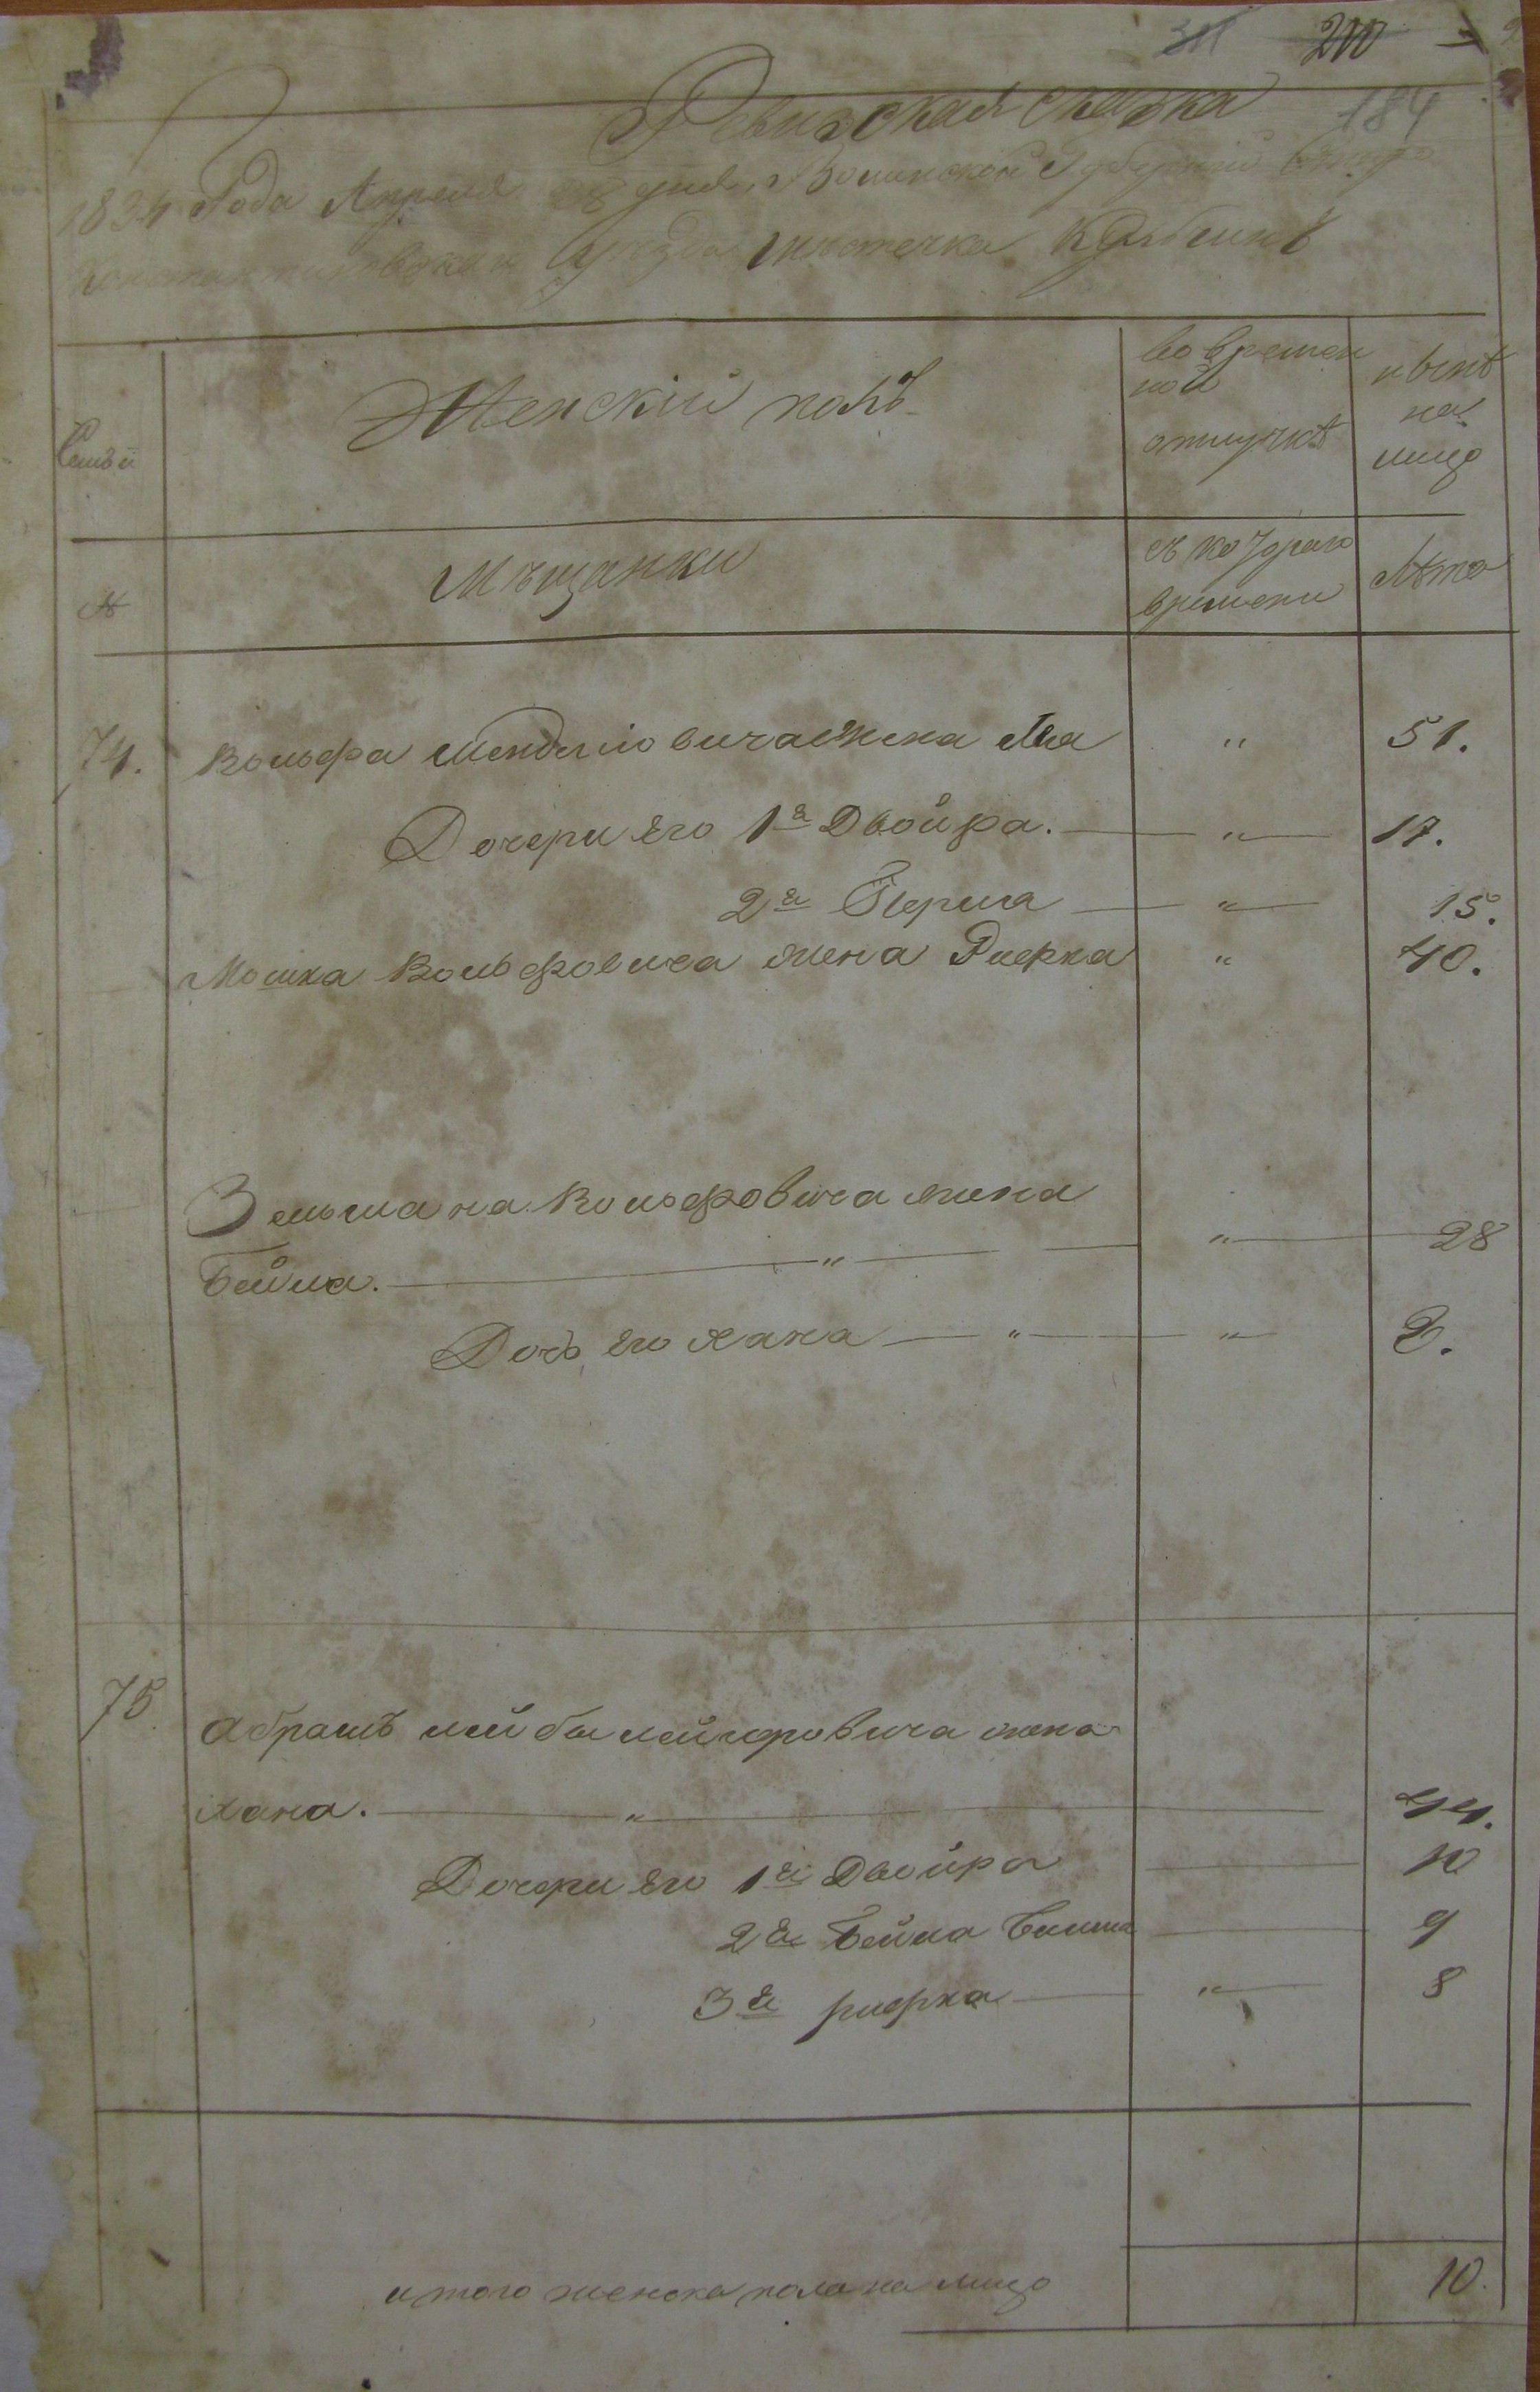 200
184
Ревизская сказка
1834 Года Апреля дня, Волынской Губернии
Уезда местечка
Семьи
Женский полъ
во времен
ной
отлучкѣ
нынѣ
на
лицо
№
Мѣщанки
съ котораго
времени
Лѣта
74. Вольфа Менделiовича жена Лея " 51.
Дочери его 1я Двойра. " 17.
2я Перла " 15.
Мошка Вольфовича жена Рифка " 40.
Зельмана Вольфовича жена
Бейла. " " 28
Дочь его Хана " " 2.
75 Абрамъ Лейбы жена
Хана. " 44.
Дочери его 1я Двойра 10
2я Бейла 9
3я рифка " 8
итого женска пола на лицо 10.